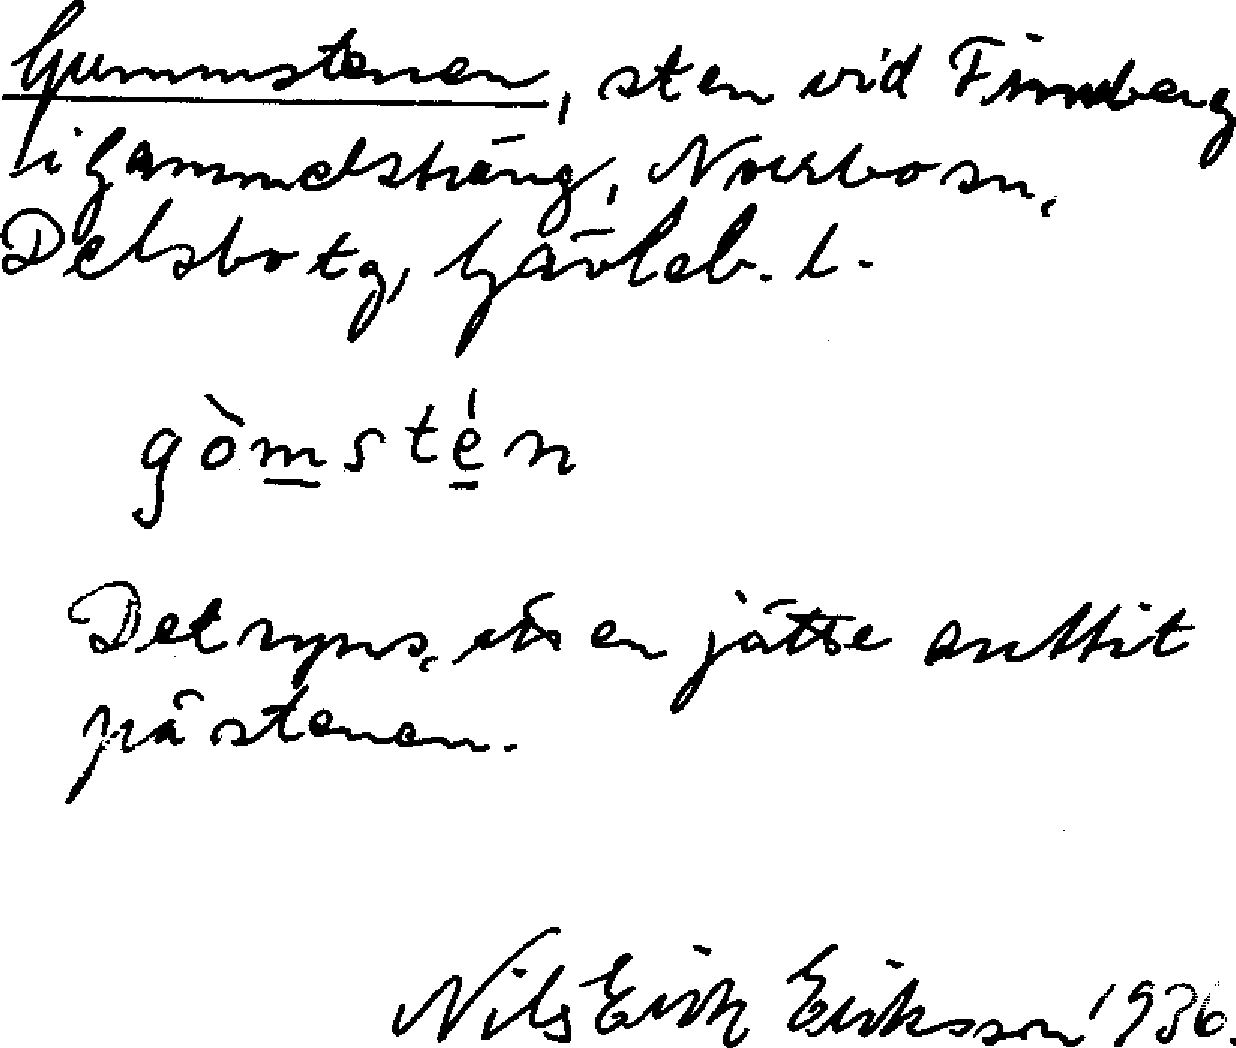 Gummstenen, sten vid Finnberg
i Gammelsträng, Norrbo sn,
Delsbo tg, Gävleb. l.
gòmstén
Det syns, där en jätte suttit
på stenen.
Nils Erik Eriksson 1936.